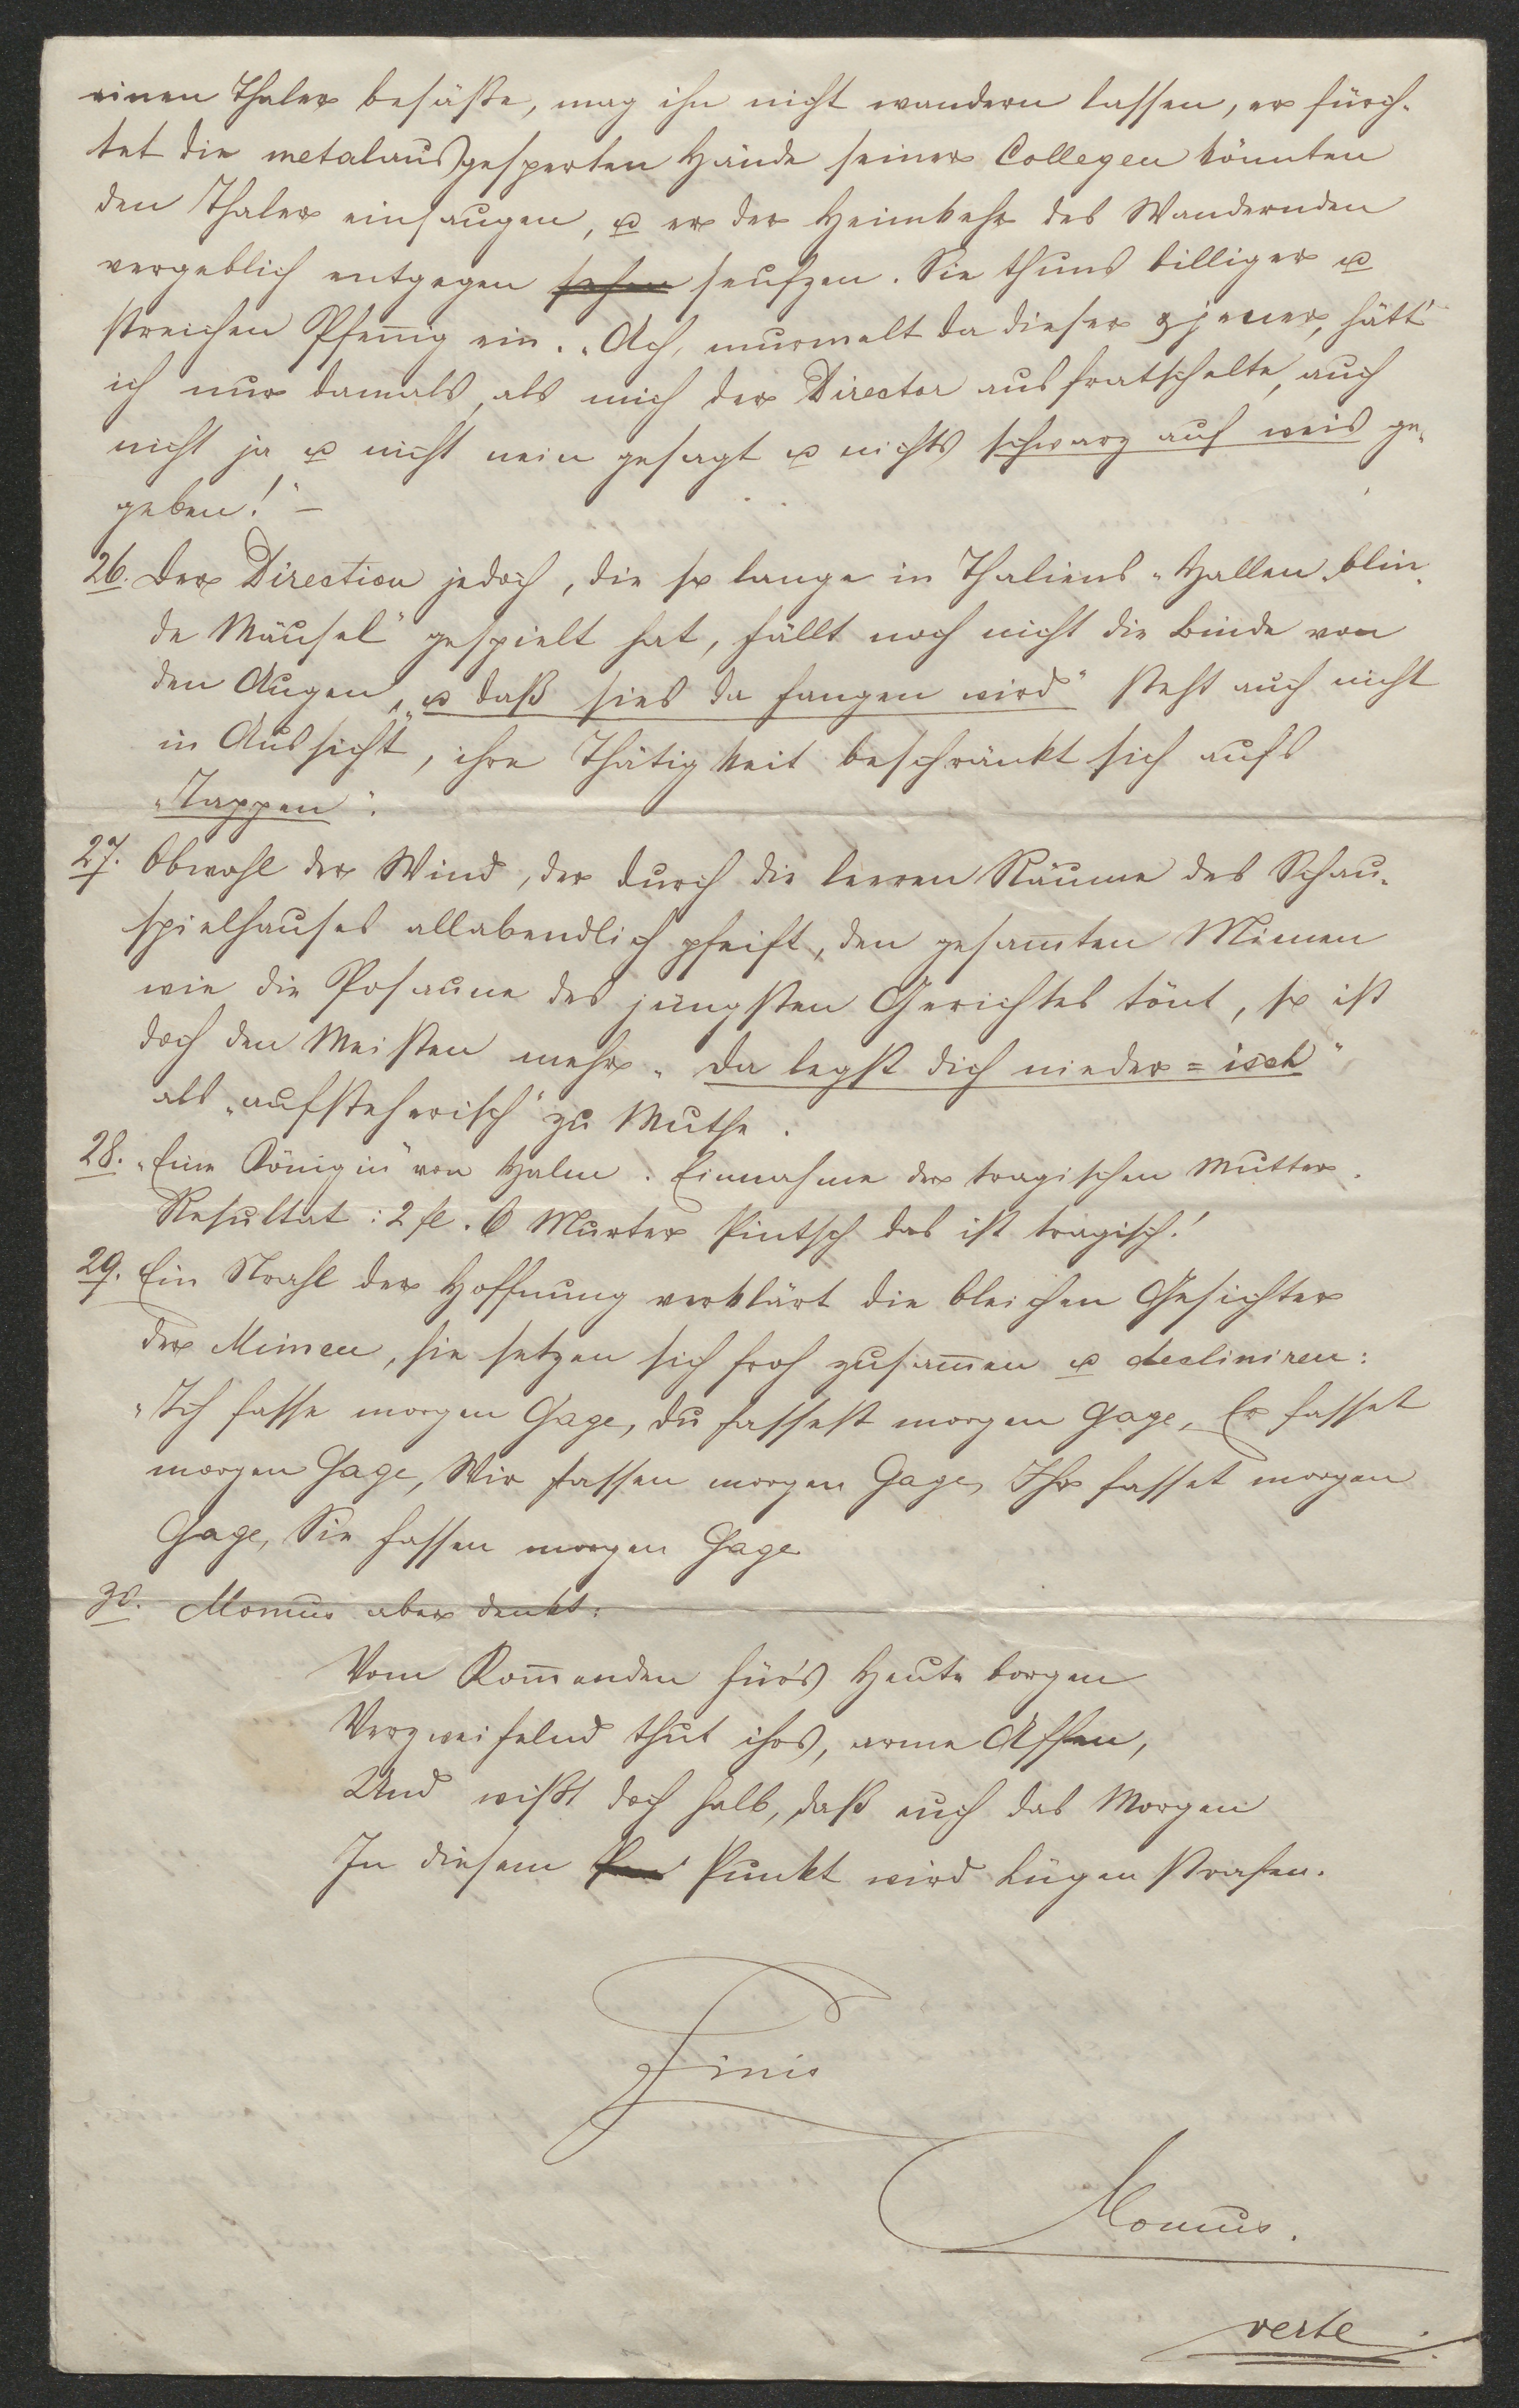 einen Thaler besäße, mag ihn nicht wandern lassen, er fürch-
tet die metalausgesperten Hände seiner Collegen könnten
den Thaler einsaugen, u er der Heimkehr des Wandernden
vergeblich entgegen sehen seufzen. Sie thuns billiger u
streichen Pfenig ein. „Ach, murmelt da dieser u jener, hätt'
ich nur damals, als mich der Director ausfratschelte, auch
nicht ja u nicht nein gesagt u nichts schwarz auf weis ge-
geben!" –
26. Der Direction jedoch, die so lange in Thaliens Hallen „blin-
de Mäusel" gespielt hat, fällt noch nicht die Binde von
den Augen, „u daß sies da fangen wird" steht auch nicht
in Aussicht, ihre Thätigkeit beschränkt sich aufs
„Tappen".
27. Obwohl der Wind, der durch die leeren Räume des Schau-
spielhauses allabendlich pfeift, den gesamten Mimen
wie die Posaune des jüngsten Gerichtes tönt, so ist
doch den Meisten mehr „da legst dich nieder=isch"
als „aufsteherisch" zu Muthe.
28. „Eine Königin" von Halm. Einnahme der tragischen Mutter.
Resultat: 2 fl. O Murter Pintsch das ist tragisch!
29. Ein Strahl der Hoffnung verklärt die bleichen Gesichter
der Mimen, sie setzen sich froh zusamen u decliniren:
„Ich fasse morgen Gage, du fassest morgen Gage, Er fasset
morgen Gage, Wir fassen morgen Gage, Ihr fasset morgen
Gage, Sie fassen morgen Gage
30. Momus aber denkt:
Vom Komenden für's Heute borgen
Verzweifelnd thut ihrs, arme Affen,
Und wißt doch halb, daß euch das Morgen
In diesem Punkt wird Lügen strafen.
Finis
Momus.
verte